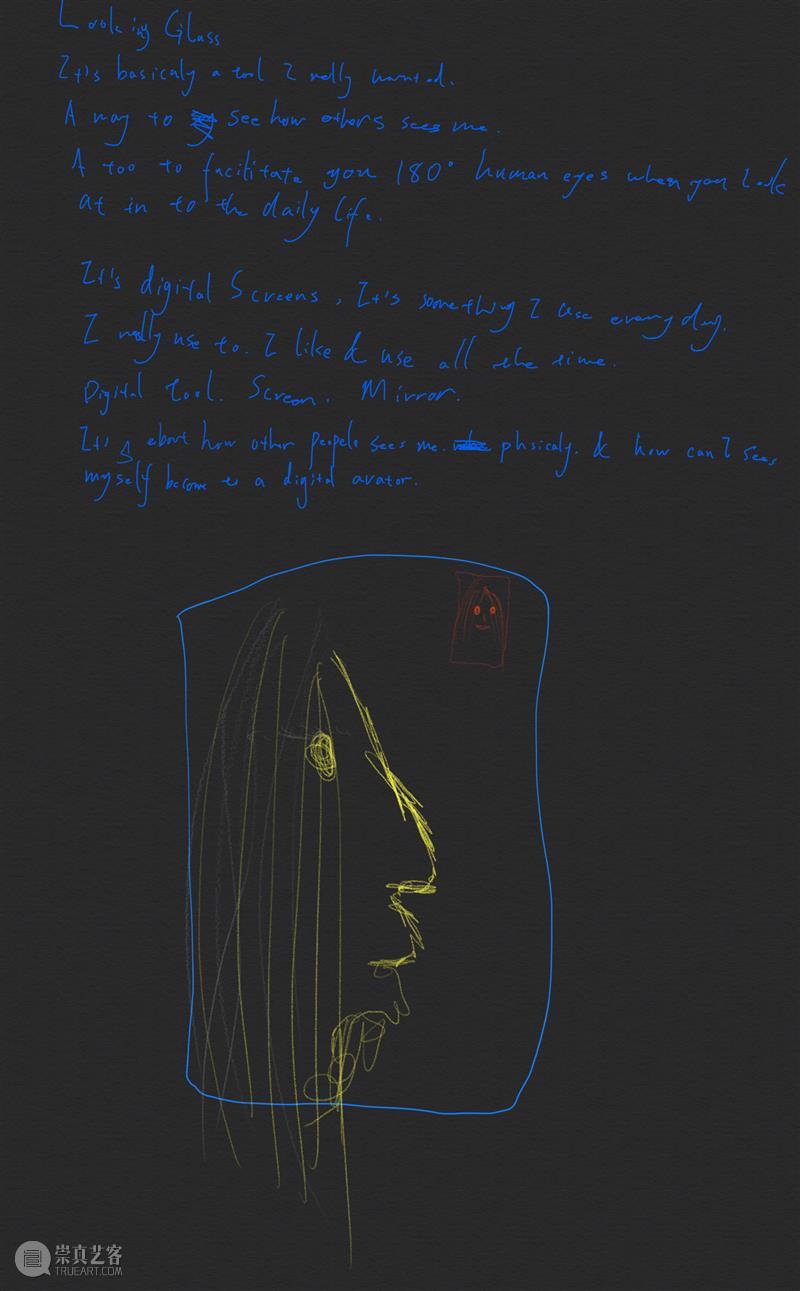 Looking Glass
It's basicaly a tool I really wanted.
A way to see how others sees me.
A too to facilitate you 180° human eyes when you look
at in to the daily life.
It's digital Screens, It's something I use every day.
I really use to. I like & use all the time.
Digital tool. Screen. Mirror.
It's about how other people sees me. phsicaly. & how can I sees
myself become to a digital avator.
崇真艺客
TRUEART.COM